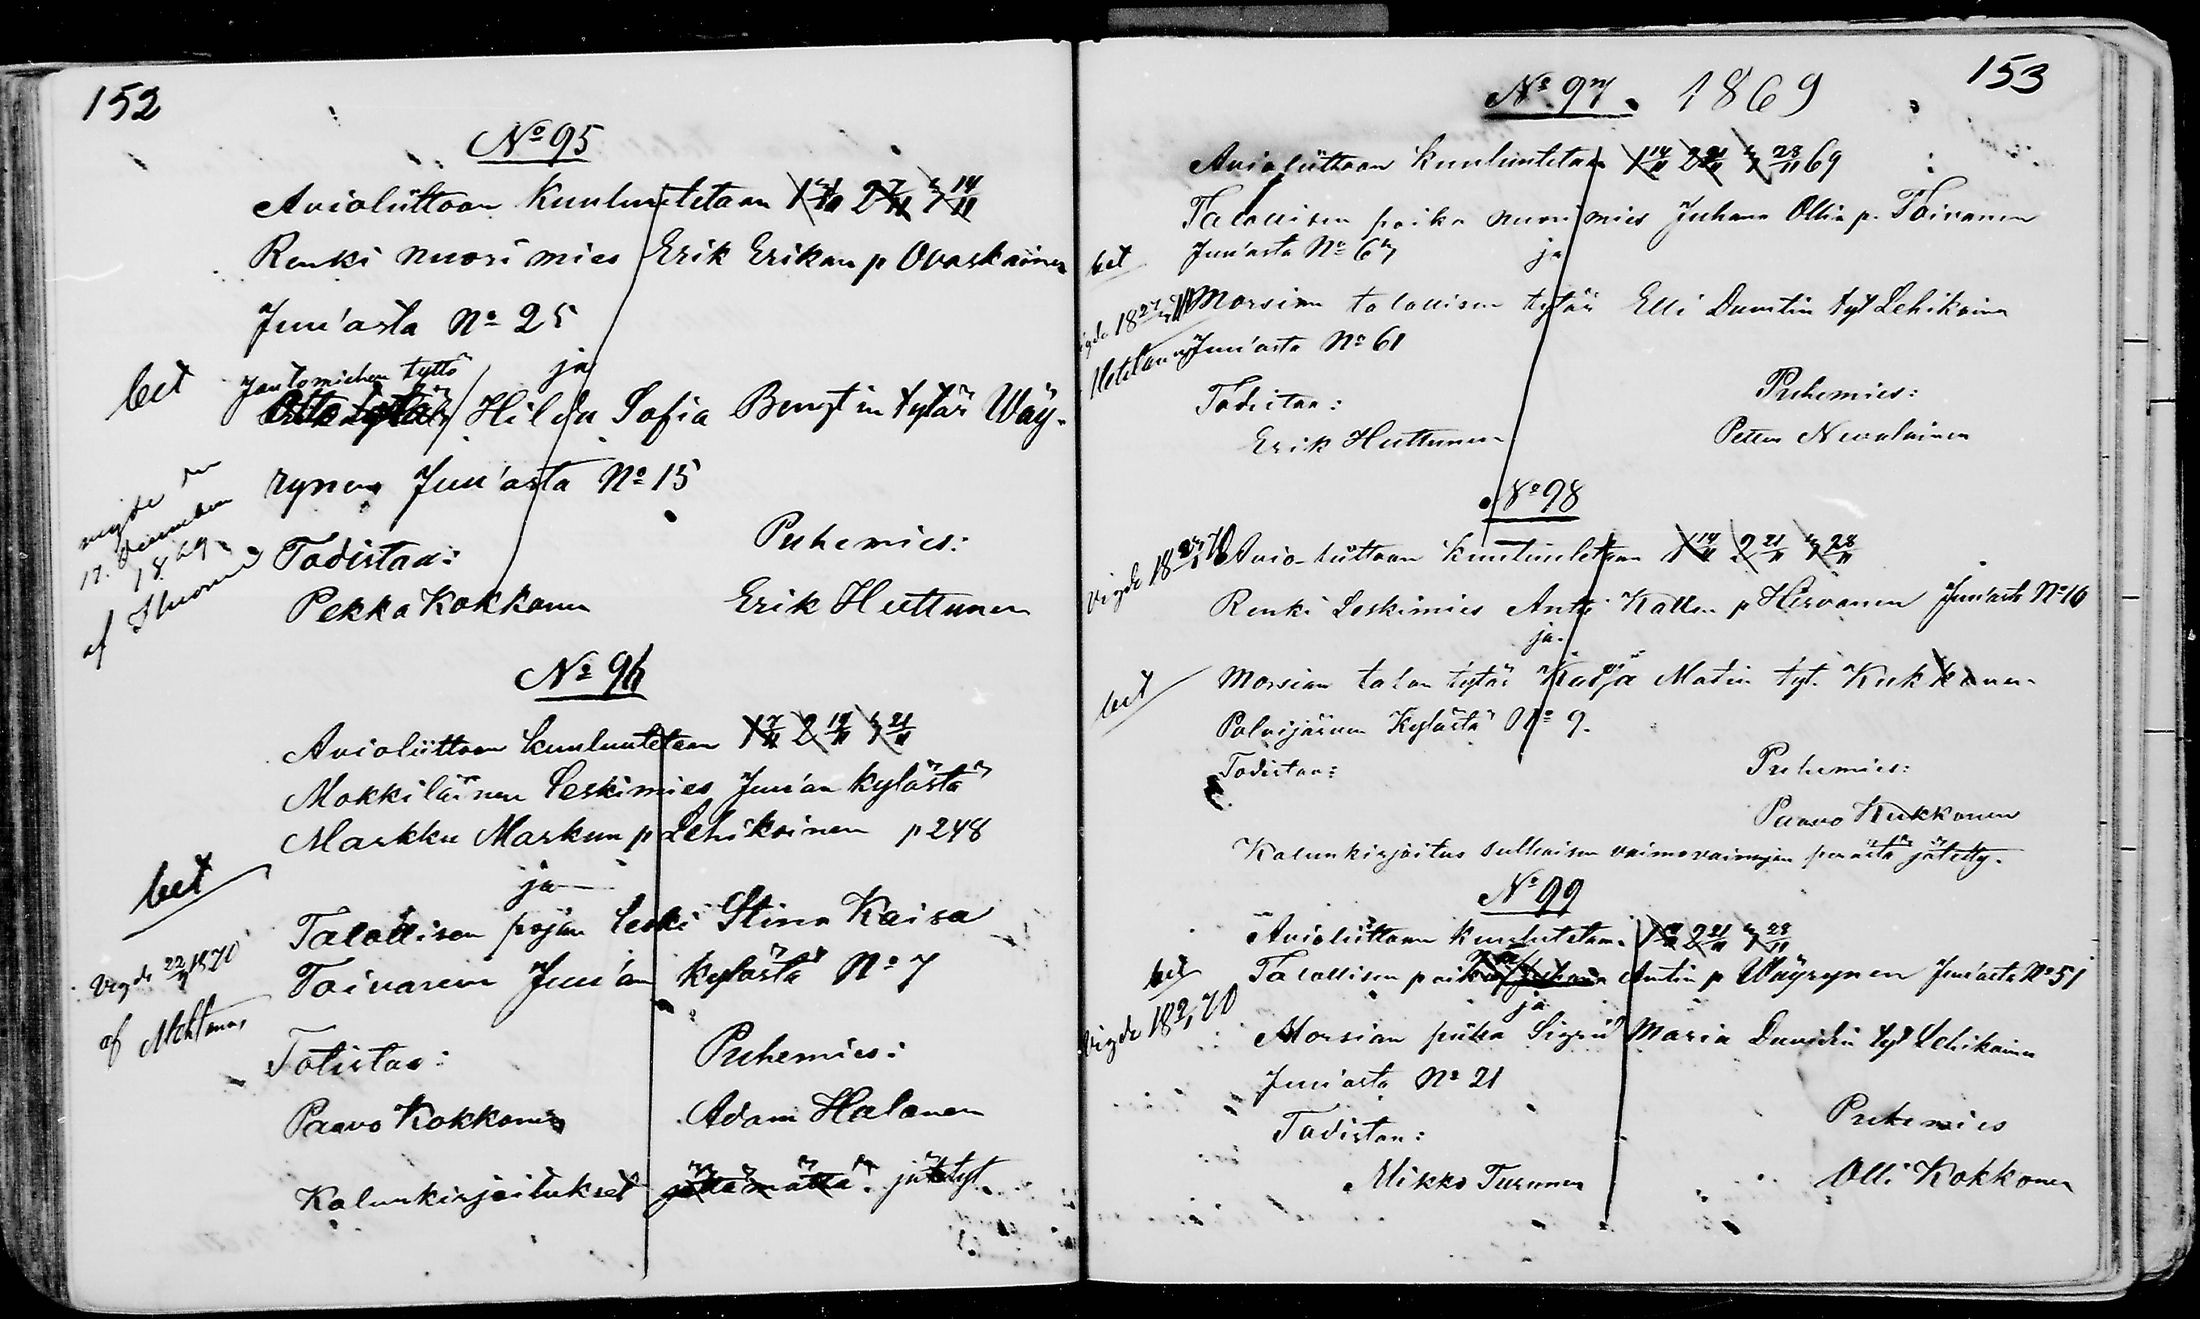 152
No 95
Avioliittoon kuulutetaan 1 31/10 2 7/11 3 14/11
Renki nuori mies Erik Erikan p Ovaskainen
Juu'asta No 25
ja
Hilda Sofia Bengtin tytär Wäy-
rynen Juu'asta No 15
bet
17. December
1869
af
Todistaa: Puhemies:
Pekka Kokkonen Erik Huttunen
No 96
Avioliittoon kuulutetaan 1 7/11 2 14/11 3 21/11
Mökkiläinen Leskimies Juu'an kylästä
Markku Markun p Lehikoinen p 248
ja
Talollisen pojan leski Stina Kaisa
Toivanen Juu'an kylästä No 7
bet
Vigde 1870
af
Totistaa: Puhemies:
Paavo Kokkonen Adam Halonen
Kalunkirjoitukset jättämättä. jätetyt.
153
No 97. 1869
Avioliittoon kuulutetaan 1 14/11 2 21/11 3 28/11 69
Talollisen poika nuori mies Juhana Ollin p. Toivanen
Juu'asta No 67 ja
bet
Morsian talollisen tytär Elli Davitin tyt Lehikoinen
Juu'asta No 61
Todistaa: Puhemies:
Erik Huttunen Petter Nevalainen
No 98
Avio-liittoon kuulutetaan 1 14/11 2 21/11 3 28/11
Renki Leskimies Antti Kallen p Hirvonen Juu'asta No 16
ja.
Morsian talon tytär Kadja Matin tyt. Kukkonen
Polvijärven Kylästä No 9.
bet
Todistaa: Puhemies:
Paavo Kukkonen
Kalunkirjoitus sulhaisen vaimovainajan perästä jätetty.
No 99
Avioliittoon kuulutetaan 1 14/11 2 21/11 3 28/11
Talollisen poika Antin p Wäyrynen Juu'asta No 51
ja
Morsian piika Sigrid Maria Davidin tyt Lehikoinen
Juu'asta No 21
bet
Todistaa: Puhemies
Mikko Turunen Olli Kokkonen